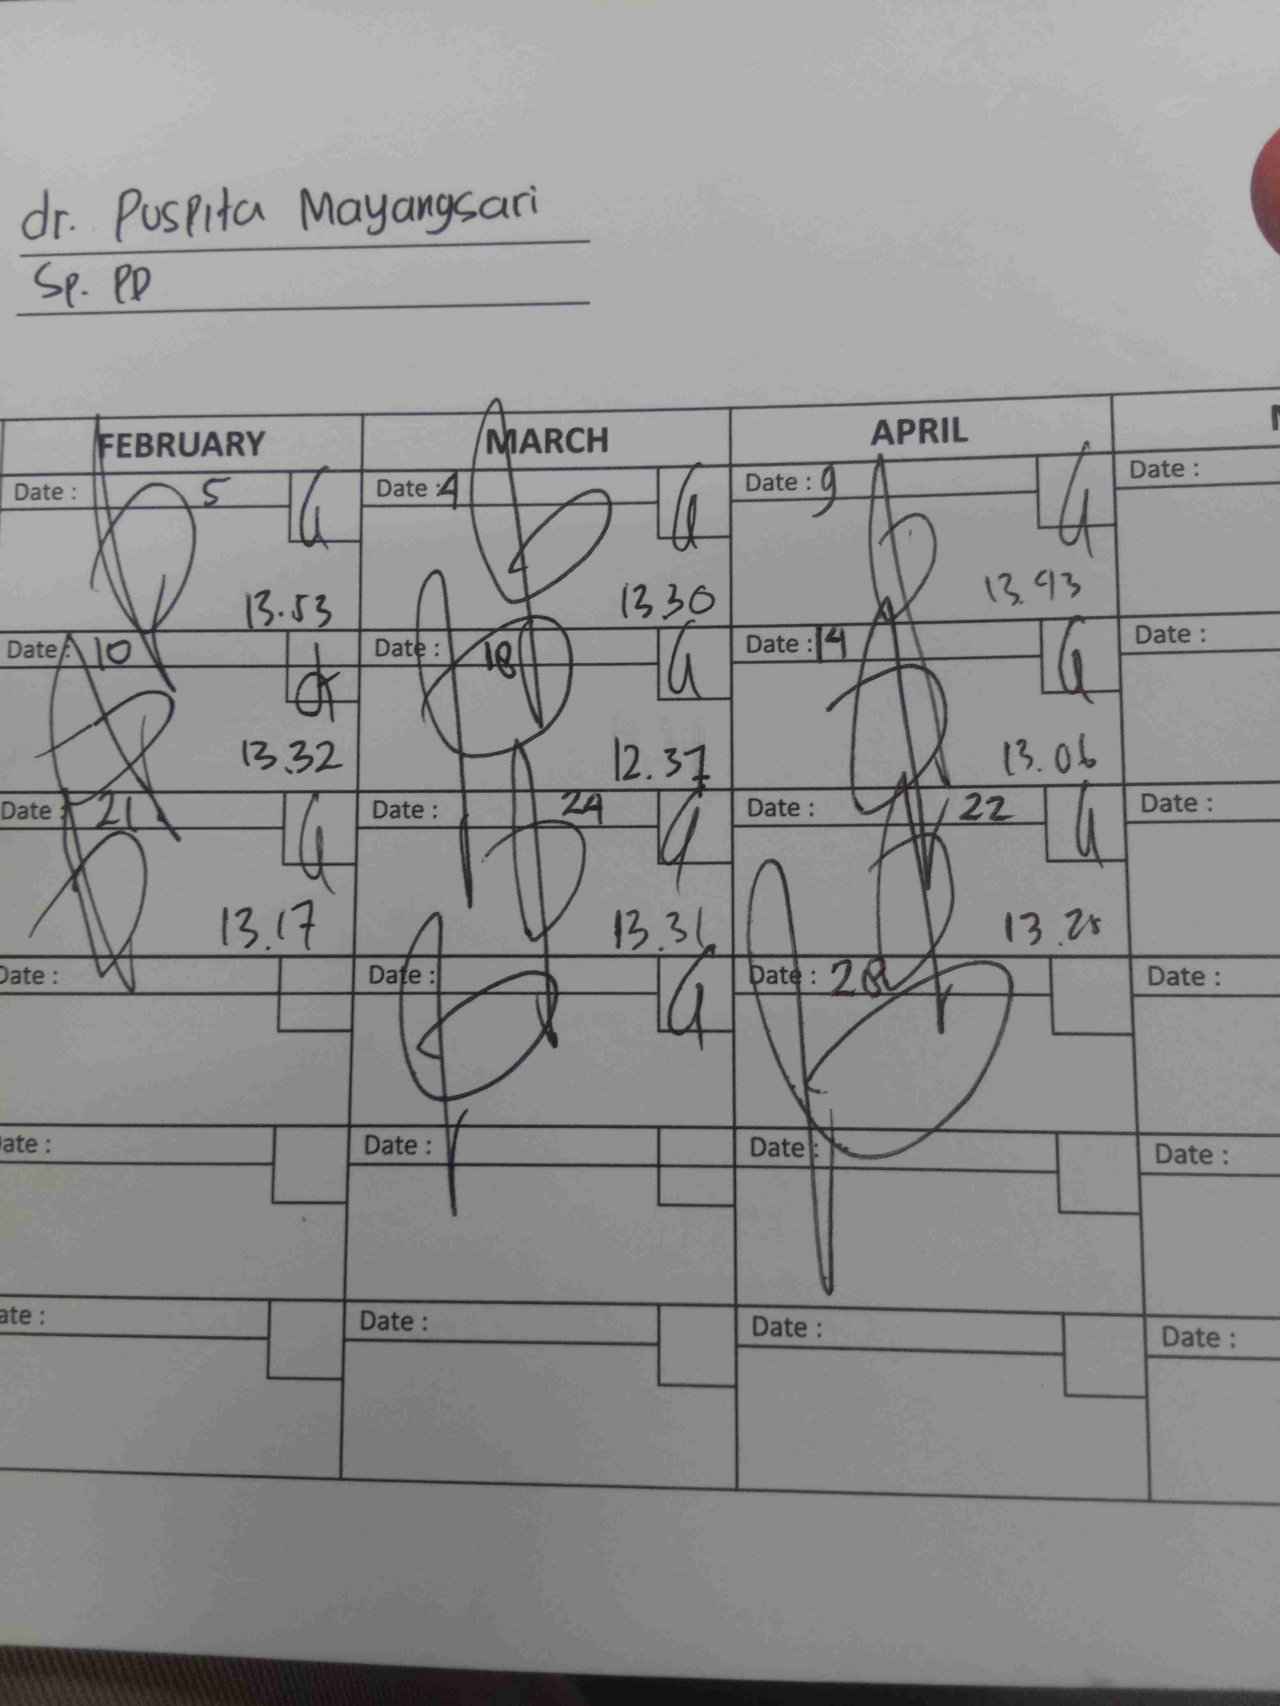 dr. Puspita Mayangsari
Sp. PD
FEBRUARY MARCH APRIL
Date : 5 Date : 4 Date : 9 Date :
13.53 13.30 13.43
Date : 10 Date : 18 Date : 14 Date :
13.32 12.37 13.06
Date : 21 Date : 24 Date : 22 Date :
13.17 13.31
Date : Date : Date : 28 Date :
Date : Date : Date : Date :
Date : Date : Date : Date :